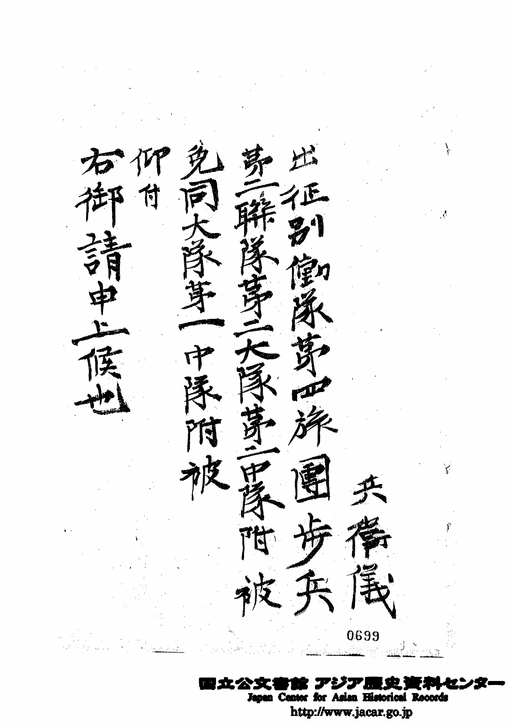 兵衛儀
出征別働隊第四旅團歩兵
第二聯隊第二大隊第二中隊附被
免同大隊第一中隊附被
仰付
右御請申上候也
0699
国立公文書館 アジア歴史資料センター
Japan Center for Asian Historical Records
http://www.jacar.go.jp